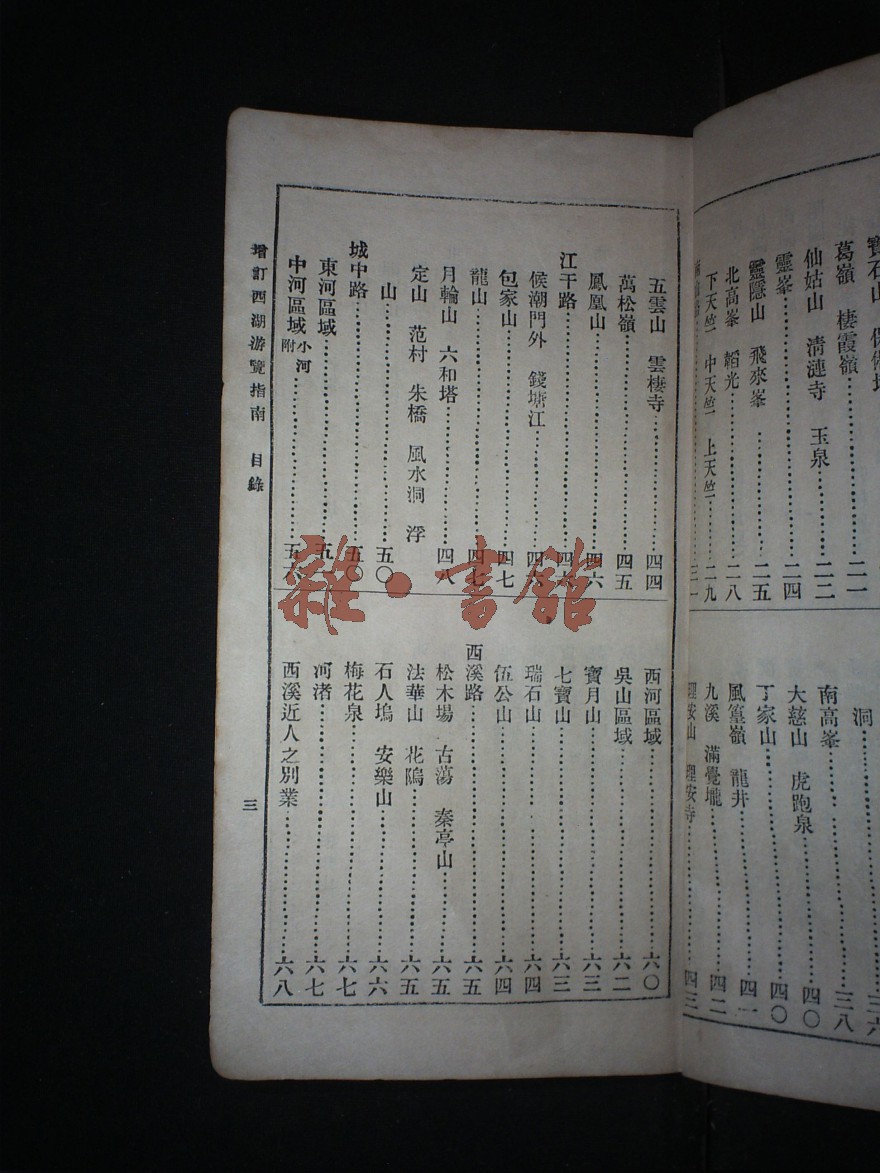 寶石山　保俶塔
葛嶺　棲霞嶺……二一
仙姑山　清漣寺　玉泉……二二
靈峯……二四
靈隱山　飛來峯……二五
北高峯　韜光……二八
下天竺　中天竺　上天竺……二九
三一
洞……三六
南高峯……三八
大慈山　虎跑泉……四〇
丁家山……四〇
風篁嶺　龍井……四一
九溪　滿覺壠……四二
理安山　理安寺……四三
五雲山　雲棲寺……四四
萬松嶺……四五
鳳凰山……四六
江干路……四六
候潮門外　錢塘江……四六
包家山……四七
龍山……四七
月輪山　六和塔……四八
定山　范村　朱橋　風水洞　浮
山……五〇
城中路……五〇
東河區域……五一
中河區域附小河……五六
西河區域……六〇
吳山區域……六二
寶月山……六三
七寶山……六三
瑞石山……六四
伍公山……六四
西溪路……六五
松木場　古蕩　秦亭山……六五
法華山　花隖……六五
石人塢　安樂山……六六
梅花泉……六七
河渚……六七
西溪近人之別業……六八
增訂西湖游覽指南　目錄
三
雜·書館